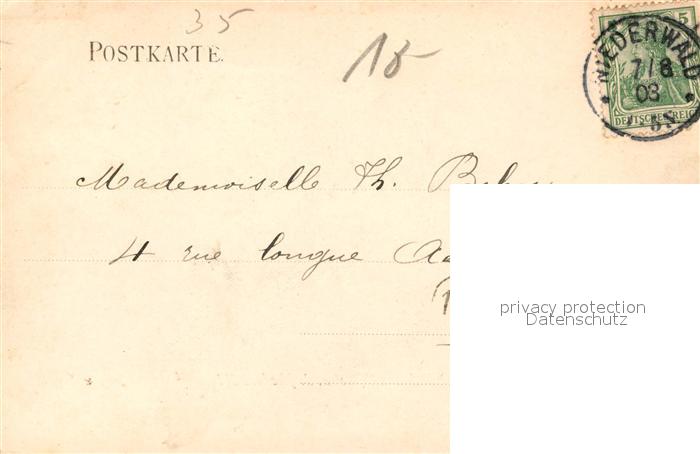 35
POSTKARTE.
18
5
NIEDERWALD
7/8
03
DEUTSCHES REICH
Mademoiselle Th.
4 rue longue
privacy protection
Datenschutz